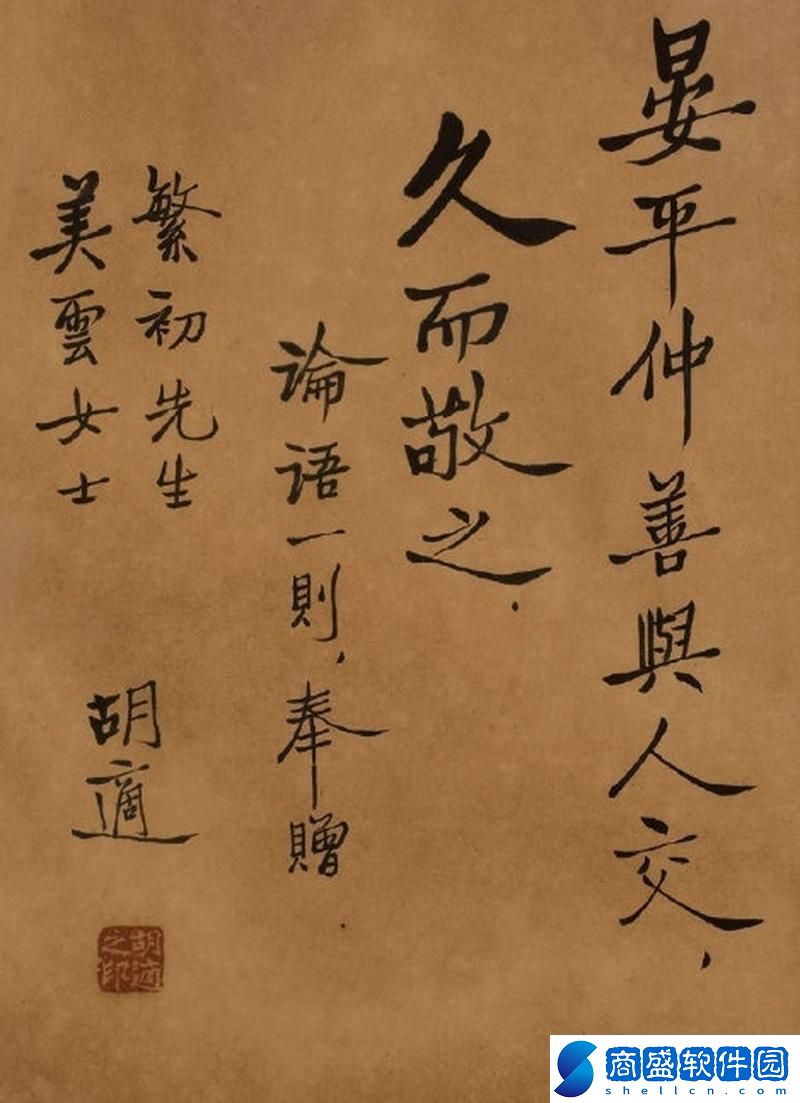 晏平仲善與人交，
久而敬之．
論語一則，奉贈
繁初先生
美雲女士
胡適
胡適之印
商盛软件园
shellcn.com